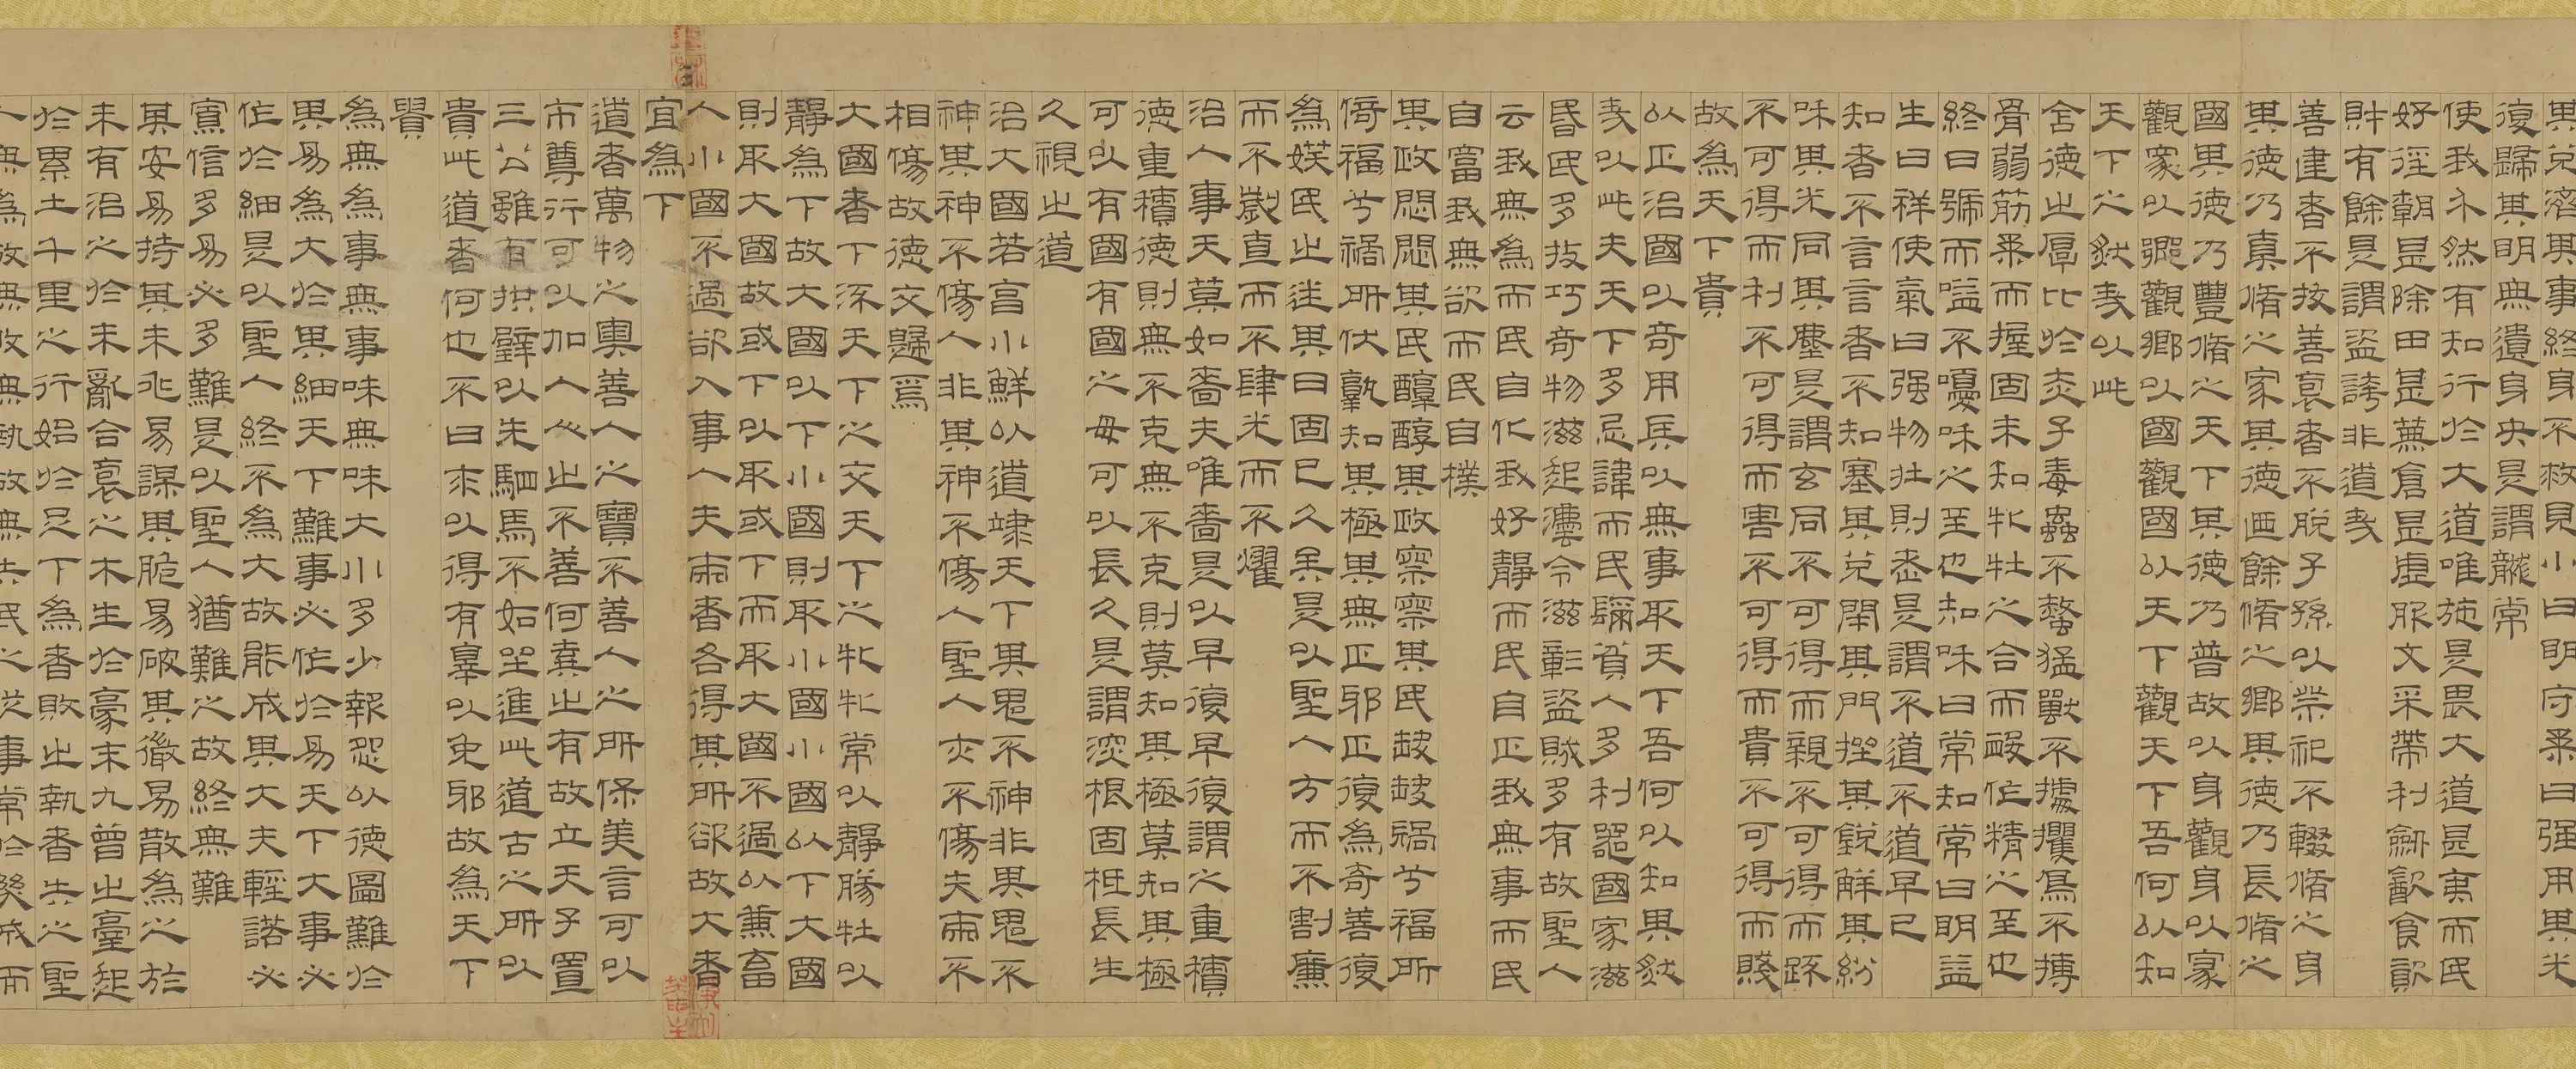 其兌濟其事終身不救見小曰明守柔曰强用其光
復歸其明無遺身央是謂襲常
使我介然有知行於大道唯施是畏大道甚夷而民
好徑朝甚除田甚蕪倉甚虛服文采帶利劒食
財有餘是謂盜誇非道哉
善建者不拔善裒者不脫子孫以祭祀不輟脩之身
其德乃真脩之家其德迺餘脩之鄉其德乃長脩之
國其德乃豐脩之天下其德乃普故以身觀身以家
觀家以鄉觀鄉以國觀國以天下觀天下吾何以知
天下之然哉以此
含德之厚比於赤子毒蟲不螫猛獸不據攫鳥不搏
骨弱筋柔而握固未知牝牡之合而作精之至也
終日號而嗌不嚘和之至也知和曰常知常曰明益
生曰祥使氣曰强物壯則老是謂不道不道早已
知者不言言者不知塞其兌閉其門挫其銳解其紛
和其光同其塵是謂玄同不可得而親不可得而踈
不可得而利不可得而害不可得而貴不可得而賤
故為天下貴
以正治國以奇用兵以無事取天下吾何以知其然
哉以此夫天下多忌諱而民彌貧人多利器國家滋
昏民多技巧奇物滋起灋令滋彰盜賊多有故聖人
云我無為而民自化我好靜而民自正我無事而民
自富我無欲而民自樸
其政悶悶其民醇醇其政察察其民缺缺禍兮福所
倚福兮禍所伏孰知其極其無正邪正復為奇善復
為民之迷其日固已久矣是以聖人方而不割廉
而不劌直而不肆光而不燿
治人事天莫如嗇夫唯嗇是以早復早復謂之重積
德重積德則無不克無不克則莫知其極莫知其極
可以有國有國之母可以長久是謂深根固柢長生
久視之道
治大國若亯小鮮以道涖天下其鬼不神非其鬼不
神其神不傷人非其神不傷人聖人亦不傷夫兩不
相傷故德交歸焉
大國者下流天下之交天下之牝牝常以靜勝牡以
靜為下故大國以下小國則取小國小國以下大國
則取大國故或下以取或下而取大國不過欲兼畜
人小國不過欲入事人夫兩者各得其所欲故大者
宜為下
道者萬物之奧善人之寶不善人之所保美言可以
市尊行可以加人人之不善何棄之有故立天子置
三公雖有拱璧以先駟馬不如坐進此道古之所以
貴此道者何也不曰求以得有辠以免邪故為天下
貴
為無為事無事味無味大小多少報怨以德圖難於
其易為大於其細天下難事必作於易天下大事必
作於細是以聖人終不為大故能成其大夫輕諾必
寡信多易必多難是以聖人猶難之故終無難
其安易持其未兆易謀其脆易破其微易散為之於
未有治之於未亂合裒之木生於豪末九曾之臺起
於累土千里之行始於足下為者敗之執者失之聖
人無為故無敗無執故無失民之從事常於幾成而